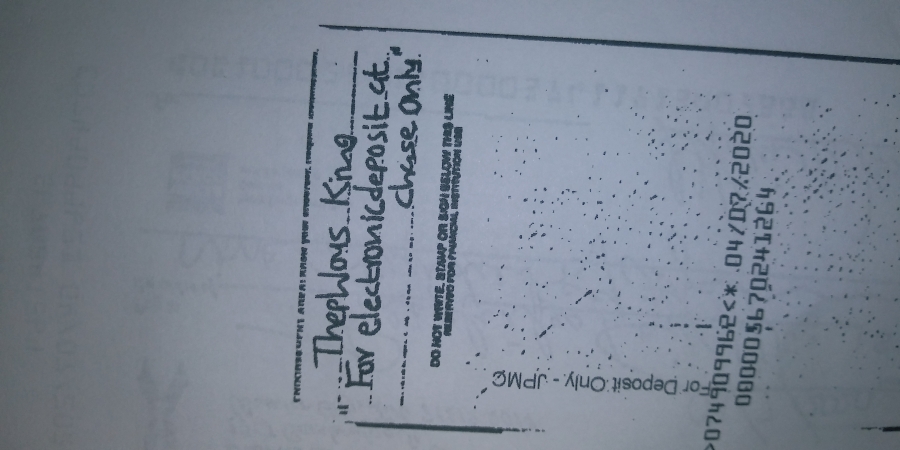 "Thephlons King
For electronic deposit at
chase only."
DO NOT WRITE, STAMP OR SIGN BELOW THIS LINE
RESERVED FOR FINANCIAL INSTITUTION USE
For Deposit Only - JPMC
>074909962<* 04/07/2020
000005670241264